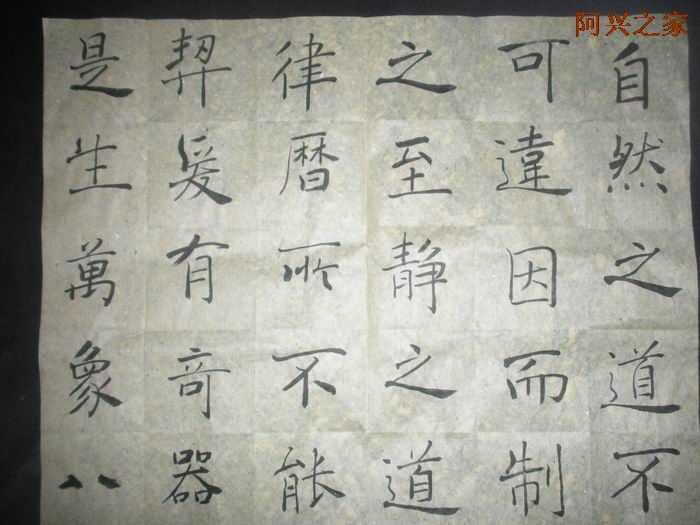 阿兴之家
自然之道不
可違因而制
之至静之道
律曆所不能
契爰有奇器
是生萬象八